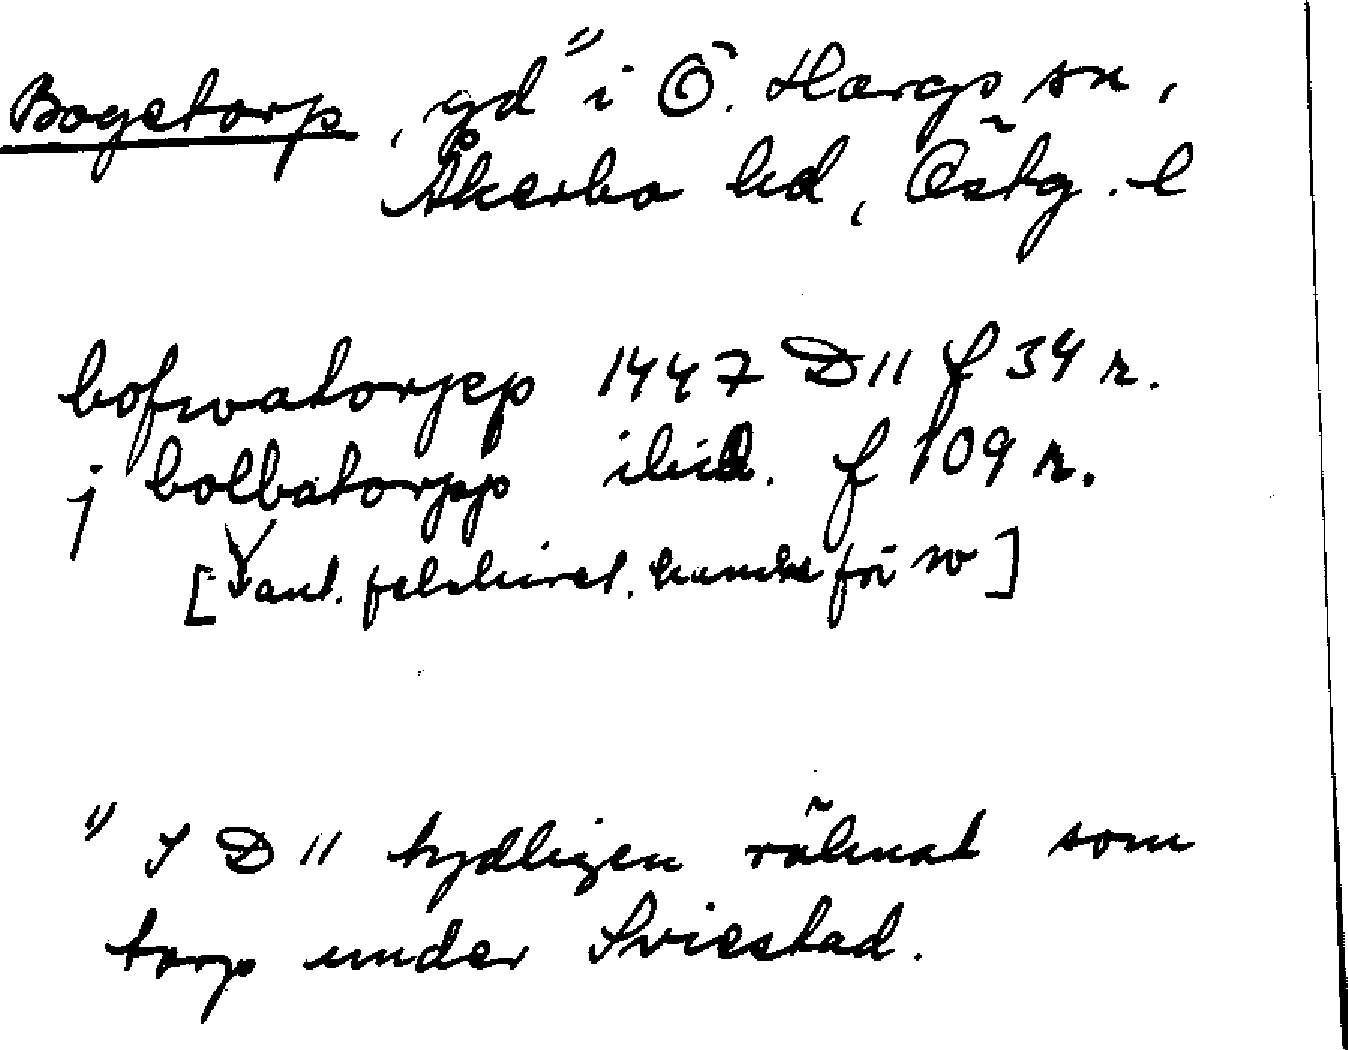 Bogetorp, gd " i Ö. Hargs sn,
Åkerbo hd, Östg. l
bofwatorpp 1447 D 11 f 34 r.
j bolbatorpp ibid. f 109 r.
[ant. felskrivet. kanske för w]
" I D 11 tydligen räknat som
torp under Sviestad.